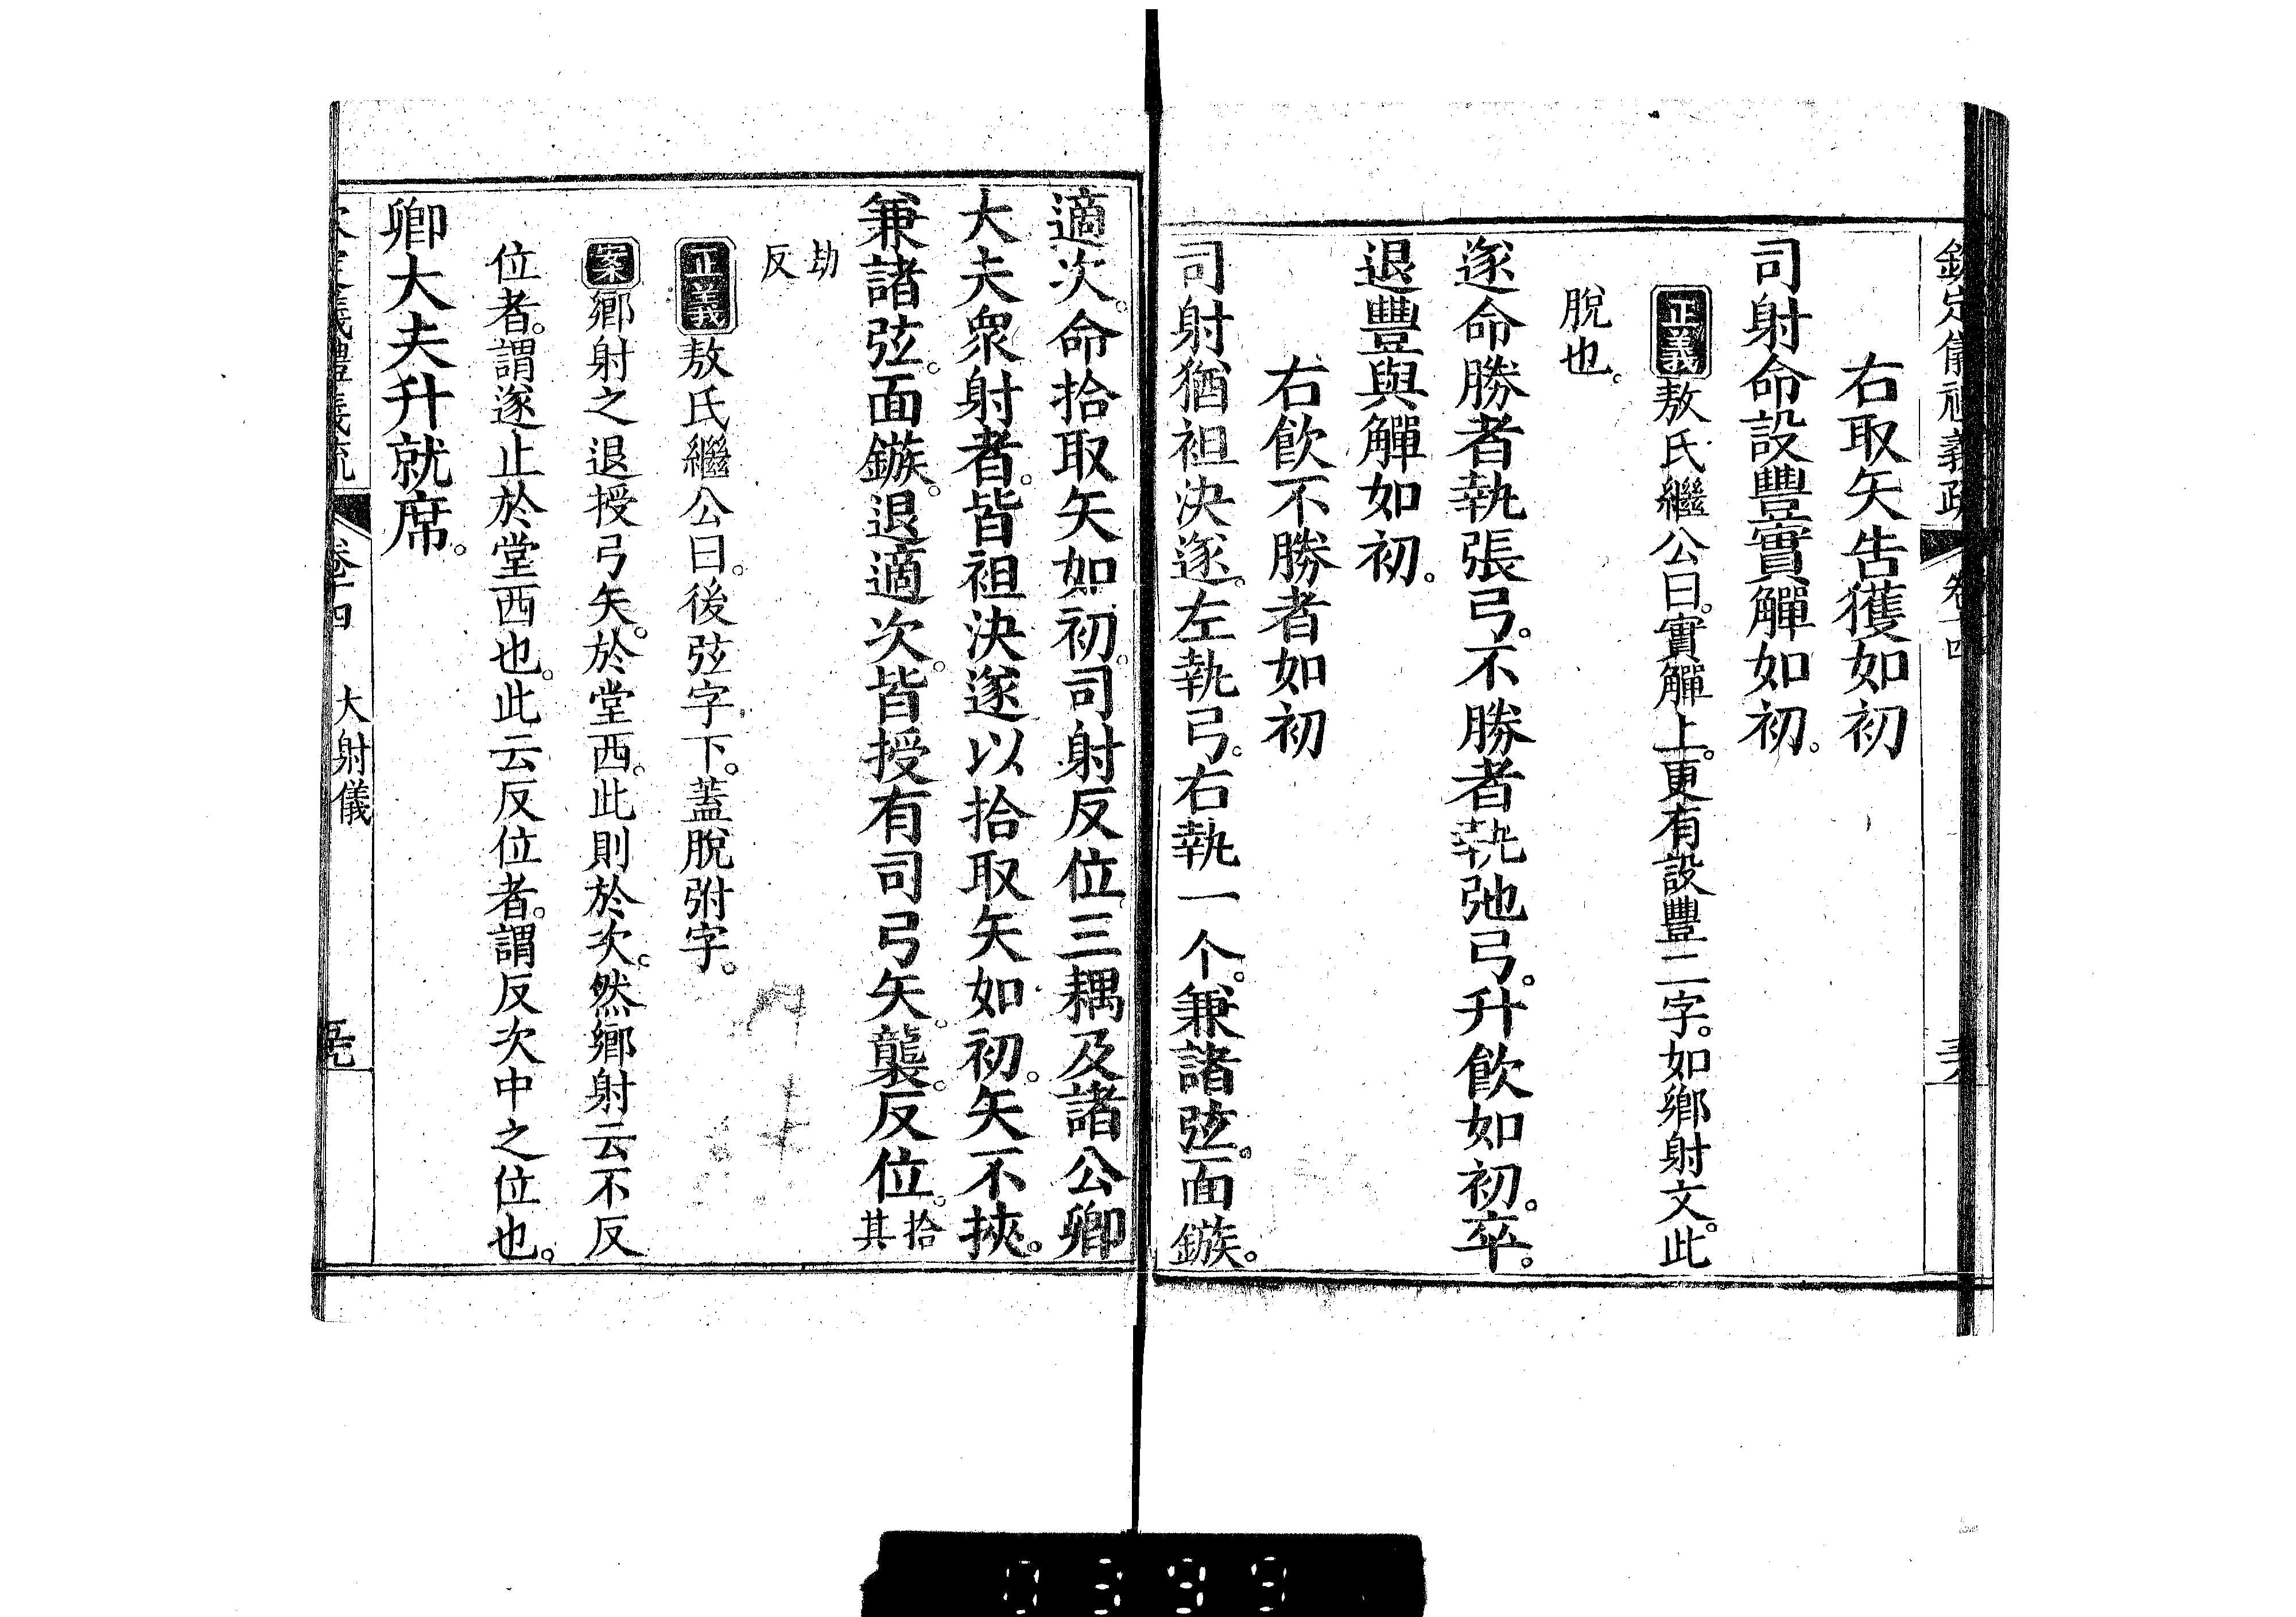 欽定儀禮義疏 卷十四
右取矢告獲如初
司射命設豐實觶如初。
正義敖氏繼公曰。實觶上。更有設豐二字。如鄉射文。此
脫也。
遂命勝者執張弓。不勝者執弛弓。升飲如初。卒。
退豐與觶如初。
右飲不勝者如初
司射猶袒決遂。左執弓。右執一个。兼諸弦。面鏃。
適次。命拾取矢如初。司射反位。三耦及諸公卿
大夫衆射者。皆袒決遂以拾取矢如初。矢不挾。
兼諸弦。面鏃。退適次。皆授有司弓矢。襲。反位。拾其
劫反
正義敖氏繼公曰。後弦字下。蓋脫弣字。
案鄉射之退授弓矢。於堂西。此則於次。然鄉射云不反
位者。謂遂止於堂西也。此云反位者。謂反次中之位也。
卿大夫升就席。
欽定儀禮義疏 卷十四 大射儀
0399